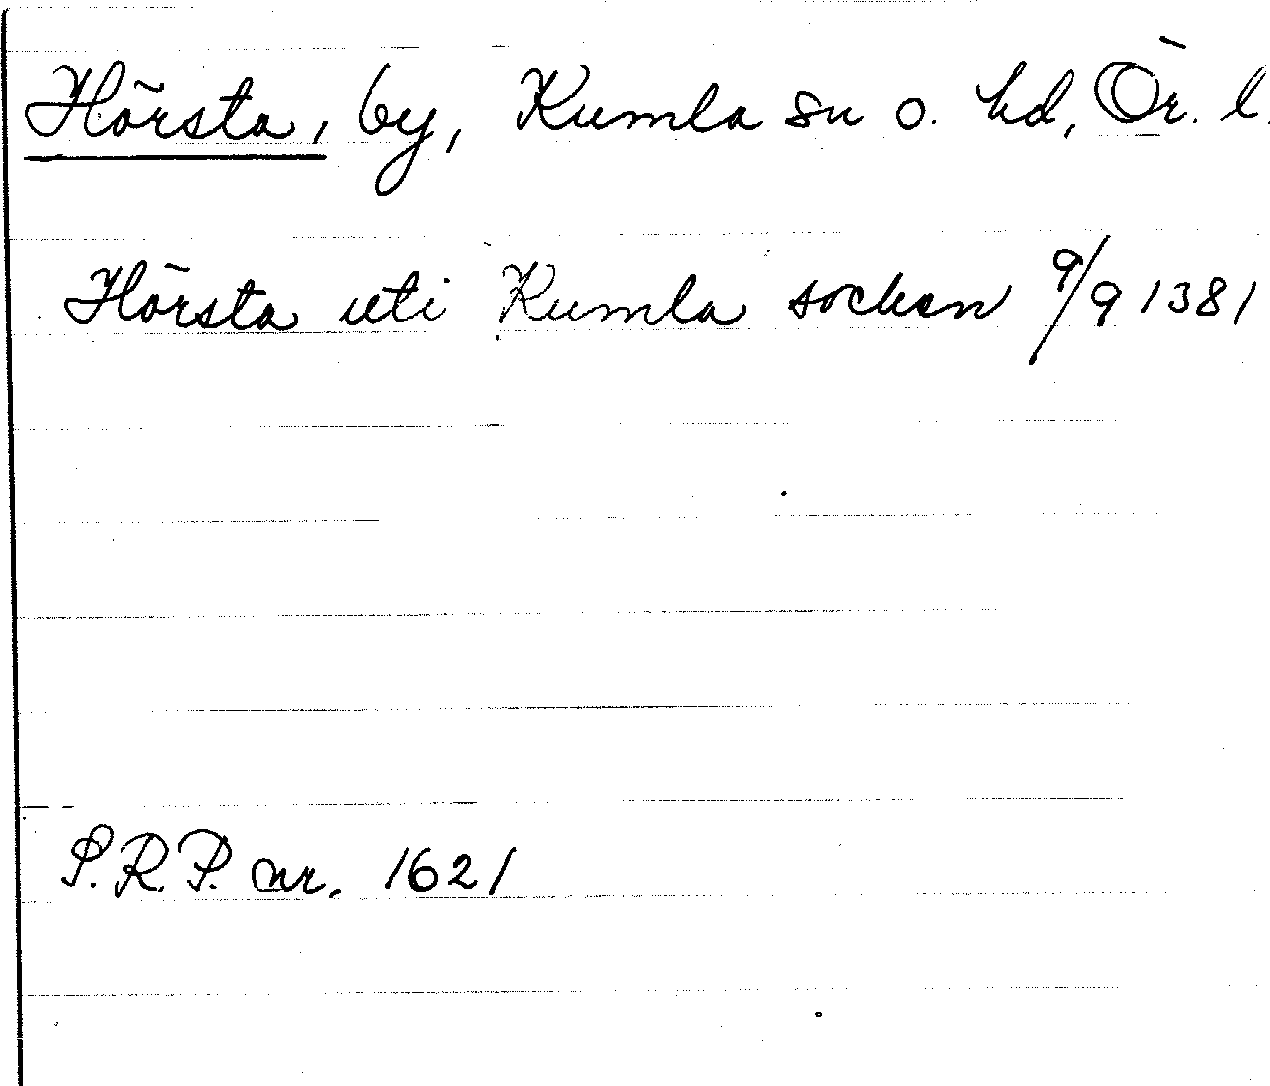 Hörsta, by, Kumla sn o. hd, Ör. l.
Hörsta uti Kumla socken 9/9 1381
S.R.P. nr. 1621